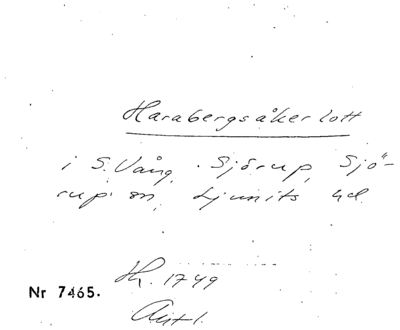 Harabergsåkerlott
i S. Vång, Sjörup, Sjö-
rup sn, Ljunits hd.
Nr 7465.
1749